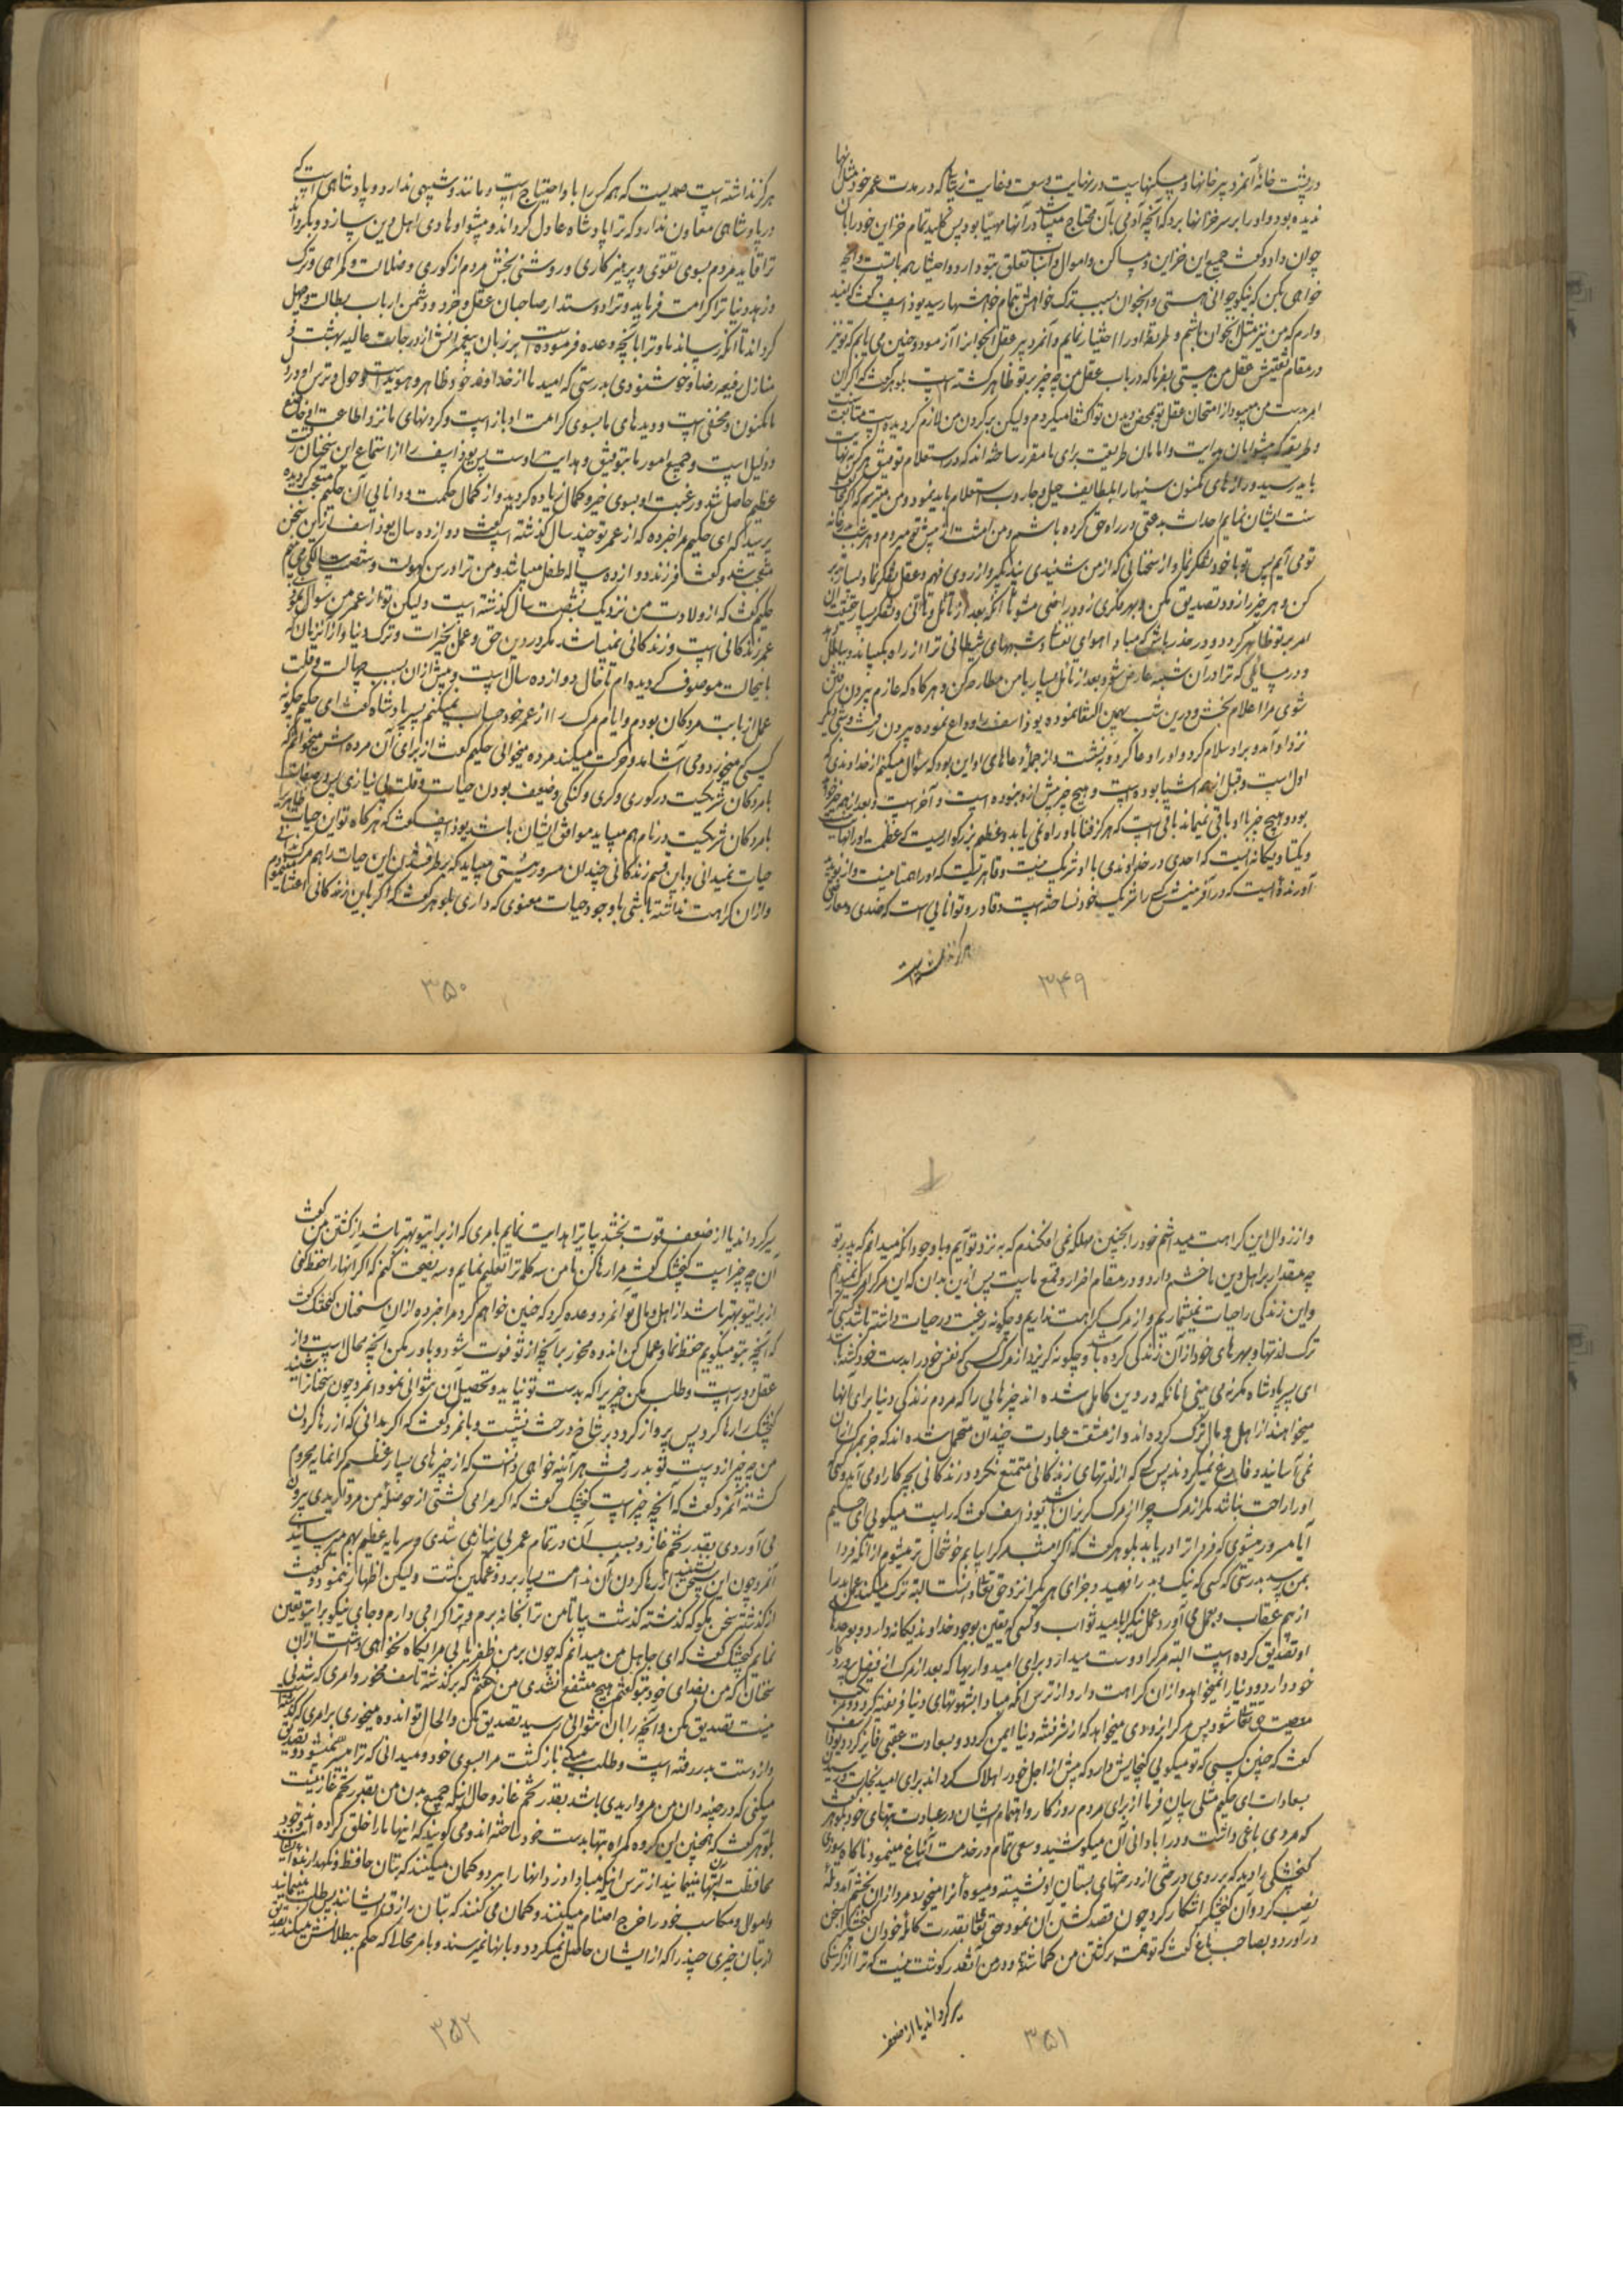 در پشت خانهٔ آنمرد پیر خانها و مسکنهاست در نهایت وسعت و غایت زیبا که در مدت عمر خود مثل آنها
ندیده بود و او را بر سر خزانها برد که آنچه آدمی بآن محتاج میباشد در آنها مهیا بود پس کلید تمام خزاین خود را بآن
جوان داد و گفت جمیع این خزاین و مساکن و اموال و اسباب تعلق بتو دارد و اختیار همه با تست و آنچه
خواهی بکن که نیکو جوانی هستی و آنجوان بسبب ترک خواهش بتمام خواهشها رسید یوذاسف گفت که امید
دارم که من نیز مثل آنجوان باشم و طریقهٔ او را اختیار نمایم و آنمرد پیر عقل آنجوانرا آزمود و چنین می یابم که تو نیز
در مقام تفتیش عقل من هستی بفرما که در باب عقل من چه چیز بر تو ظاهر گشته است بلوهر گفت که اگر این
امر بدست من میبود از امتحان عقل تو بمحض دیدن تو اکتفا میکردم ولیکن بر گردن من لازم گردیده است متابعت
و طریقه که پیشوایان هدایت و امامان طریقت برای ما مقرر ساخته اند که در استعلام توفیق هر کس بنهایت
باید رسید و رازهای مکنون سینها را بلطایف حیل و تجارب استعلام باید نمود و من میترسم که اگر مخالفت
سنت ایشان نمایم احداث بدعتی در راه حق کرده باشم و من امشب از پیش تو میروم و هر شب بدر خانه
تو می آیم پس تو با خود تفکر نما و از سخنانی که از من شنیدی پند بگیر و از روی فهم و عقل تفکر نما و بسیار تدبر
کن و هر چیز را زود تصدیق مکن و بهر فکری زود راضی مشو تا آنکه بعد از تامل و تأنی و تفکر بسیار حقیقت آن
امر بر تو ظاهر گردد و در حذر باش که مبادا هوای نفسانی و شبهای شیطانی ترا از راه بگرداند و بباطل
و در مسائلی که ترا در آن شبهه عارض شود بعد از تامل بسیار با من مطارحه کن و هر گاه که عازم بیرون رفتن
شوی مرا اعلام بخش و درین شب بهمین اکتفا نموده یوذاسف را وداع نموده بیرون رفت و شبی دیگر
نزد او آمد و بر او سلام کرد و او را دعا کرد و نشست و از جمله دعاهای او این بود که سؤال میکنم از خداوندی که
اول است و قبل از همه اشیا بوده است و هیچ چیز پیش از او نبوده است و آخر است و بعد از همه چیز خواهد
بود و هیچ چیز با او باقی نمیماند باقی است که هرگز فنا باو راه نمی یابد و عظیم و بزرگواریست که عظمت او را نهایت نیست
و یکتا و یگانه است که احدی در خداوندی با او شریک نیست و قاهریست که او را همتا نیست و از نو پدید
آورنده ایست که در آفرینش کسی را شریک خود نساخته است و قادر و توانایی است که ضدی و معارضی
هرگز نداشته است
۳۴۹
هرگز نداشته است صمدیست که همه کس را باو احتیاج است و مانند و شبیهی ندارد و پادشاهی است که
در پادشاهی معاون ندارد که ترا پادشاه عادل گرداند و پیشوا و هادی اهل دین سازد و بگرداند
ترا قاید مردم بسوی تقوی و پرهیزکاری و روشنی بخش مردم از کوری و ضلالت و گمراهی و ترک
و زهد دنیا ترا کرامت فرماید و ترا دوستدار صاحبان عقل و خرد و دشمن ارباب بطالت و جهل
گرداند تا آنکه رساند ما و ترا بآنچه وعده فرموده است بر زبان پیغمبرانش از درجات عالیه بهشت و
منازل رفیعه رضا و خوشنودی بدرستی که امید ما از خداوند خود ظاهر و هویداست و حول و ترس او در دل
ما مکنون و مخفی است و دیدهای ما بسوی کرامت او باز است و گردنهای ما نزد اطاعت او خاضع
و ذلیل است و جمیع امور ما بتوفیق و هدایت اوست پس یوذاسف را از استماع این سخنان رقت
عظیم حاصل شد و رغبت او بسوی خیر و کمال زیاده گردید و از کمال حکمت و دانایی آن حکیم متعجب گردیده
پرسید که ای حکیم مرا خبر ده که از عمر تو چند سال گذشته است گفت دوازده سال یوذاسف ازین سخن
متعجب شد و گفت فرزند دوازده ساله طفل میباشد و من ترا در سن کهولت و شصت سالگی می بینم
حکیم گفت که از ولادت من نزدیک بشصت سال گذشته است ولیکن تو از عمر من سوال نمودی
عمر زندگانی است و زندگانی نمیباشد مگر در دین حق و عمل بخیرات و ترک دنیا و از آنزمان که
باینحالت موصوف گردیده ام تا حال دوازده سال است و پیش از آن بسبب جهالت و قلت
عمل از بابت مردگان بودم و ایام مرگ را از عمر خود حساب نمیکنم پسر پادشاه گفت ای حکیم چگونه
کسی که میخورد و می آشامد و حرکت میکند مرده میخوانی حکیم گفت از برای آن مرده اش میخوانم که
با مردگان شریکست در کوری و کری و گنگی و ضعیف بودن حیات و قلت بی نیازی پس در صفات
با مردگان شریکست در نام هم میباید موافق ایشان باشد یوذاسف گفت که هر گاه تو این حیات ظاهر را
حیات نمیدانی و باین قسم زندگانی چندان مسرور نیستی میباید که بر طرف شدن این حیات را هم مرگ ندانی
و از آن کراهت نداشته باشی با وجود حیات معنوی که داری بلوهر گفت که اگر باین زندگانی اعتنا میبود
۳۵۰
و از زوال این کراهت میداشتم خود را بچنین مهلکه نمی افکندم که به نزد تو آیم و با وجود آنکه میدانم که پدر تو
چه مقدار بر اهل دین ما خشم دارد و در مقام اضرار و قمع ماست پس ازین بدان که این مرگ را مرگ نمیدانم
و این زندگی را حیات نمیشماریم و از مرگ کراهت نداریم و چگونه رغبت در حیات داشته باشد کسی که
ترک لذتها و بهره های خود از آن زندگی کرده باشد و چگونه گریزد از مرگ کسی که نفس خود را بدست خود کشته باشد
ای پسر پادشاه مگر نمی بینی آنانکه در دین کامل شده اند چیزهایی را که مردم زندگی دنیا برای آنها
میخواهند از اهل و مال ترک کرده اند و از مشقت عبادت چندان متحمل شده اند که جز بمرگ از آن
نمی آسایند و فارغ نمیگردند پس کسی که از لذتهای زندگانی متمتع نگردد زندگانی بچه کار او می آید و کسی که
او را راحت نباشد مگر از مرگ چرا از مرگ گریزان باشد یوذاسف گفت که راست میگویی ای حکیم
آیا مسرور میشوی که فردا مرگ ترا دریابد بلوهر گفت که اگر امشب مرگ را بیابم خوشحال تر میشوم از آنکه فردا
بمن رسد بدرستی که کسی که نیک و بد را فهمید و جزای هر یک را نزد حق تعالی دانست البته ترک میکند عمل بد را
از بیم عقاب و بعمل می آورد عمل نیک را بامید ثواب و کسی که یقین بوجود خداوند یگانه دارد و بوعدهای
او تصدیق کرده است البته مرگ را دوست میدارد برای امیدواریها که بعد از مرگ از فضل پروردگار
خود دارد و دنیا را نمیخواهد و از آن کراهت دارد از ترس آنکه مبادا بشهوتهای دنیا فریفته گردد و مرتکب
معصیت حق تعالی شود پس مرگ را بزودی میخواهد که از شر فتنه دنیا ایمن گردد و بسعادت عقبی فایز گردد یوذاسف
گفت که چنین کسی که تو میگویی گنجایش دارد که پیش از اجل خود را هلاک گرداند برای امید نجات و رسیدن
بسعادات ای حکیم مثلی بیان فرما از برای مردم روزگار و اهتمام ایشان در عبادت بتهای خود بلوهر گفت
که مردی باغی داشت و در آبادانی آن میکوشید و سعی تمام در خدمت آن باغ مینمود ناگاه روزی
گنجشکی را دید که بر روی درختی از درختهای بستان او نشسته و میوه آنرا میخورد مرد از آن بخشم آمد و تله
نصب کرد و آن گنجشک را شکار کرد چون قصد کشتن آن نمود حق تعالی بقدرت کامله خود آن گنجشک را بسخن
در آورد و بصاحب باغ گفت که تو همت بر کشتن من گماشته و در من آنقدر گوشت نیست که ترا از گرسنگی
سیر گرداند یا از ضعف
۳۵۱
سیر گرداند یا از ضعف قوت بخشد بیا ترا هدایت نمایم بامری که از برای تو بهتر باشد از کشتن من گفت
آن چه چیز است گنجشک گفت مرا رها کن تا من سه کلمه ترا تعلیم نمایم و سه نصیحت کنم که اگر آنها را حفظ کنی
از برای تو بهتر باشد از اهل و مال تو آنمرد وعده کرد که چنین خواهم کرد مرا خبر ده از آن سخنان گنجشک گفت
که آنچه بتو میگویم حفظ نما و عمل کن اندوه مخور بر آنچه از تو فوت شود و باور مکن آنچه محال است و از
عقل دور است و طلب مکن چیزیرا که بدست تو نیاید و تحصیل آن نتوانی نمود آنمرد چون سخنانرا شنید
گنجشک را رها کرد پس پرواز کرد و بر شاخ درخت نشست و بآنمرد گفت که اگر بدانی که از رها کردن
من چه چیز از دست تو بدر رفت هر آینه خواهی دانست که از چیزهای بسیار عظیم گرانمایه محروم
گشته آنمرد گفت که آنچه چیز است گنجشک گفت که اگر مرا می کشتی از حوصلهٔ من مرواریدی بیرون
می آوردی بقدر تخم غاز و بسبب آن در تمام عمر بی نیاز می شدی و سرمایه عظیم بهم میرسانیدی
آنمرد چون این سخن شنید از رها کردن آن ندامت بسیار برد و غمگین گشت ولیکن اظهار ننمود و گفت
از گذشته سخن مگو که گذشته گذشت بیا تا من ترا بخانه برم و ترا گرامی دارم و جای نیکو برای تو تعیین
نمایم گنجشک گفت که ای جاهل من میدانم که چون بر من ظفر یابی مرا نگاه نخواهی داشت از آن
سخنان که من بفدای خود بتو گفتم هیچ منتفع نشدی من نگفتم که بر گذشته تاسف مخور و امری که شدنی
نیست تصدیق مکن و آنچه را بآن نتوانی رسید تصدیق مکن و الحال تو اندوه میخوری بر امری که گذشته
و از دستت بدر رفته است و طلب میکنی بازگشت مرا بسوی خود و میدانی که ترا میسر نمیشود و تصدیق
میکنی که در چینه دان من مرواریدی باشد بقدر تخم غاز و حال آنکه جمیع بدن من بقدر تخم غاز نیست
بلوهر گفت که همچنین این گروه گمراه بتها بدست خود ساخته اند و می گویند که اینها ما را خلق کرده اند و خود
محافظت بتها مینمایند از ترس اینکه مبادا دزد آنها را ببرد و گمان میکنند که بتان حافظ و نگهدارنده ایشانند
و اموال و مکاسب خود را خرج اصنام میکنند و گمان می کنند که بتان رازق ایشانند پس طلب مینمایند
از بتان خیری چند را که از ایشان حاصل نمیگردد و بآنها نمیرسند و بامر محال که حکم ببطلانش میکنند تصدیق
۳۵۲